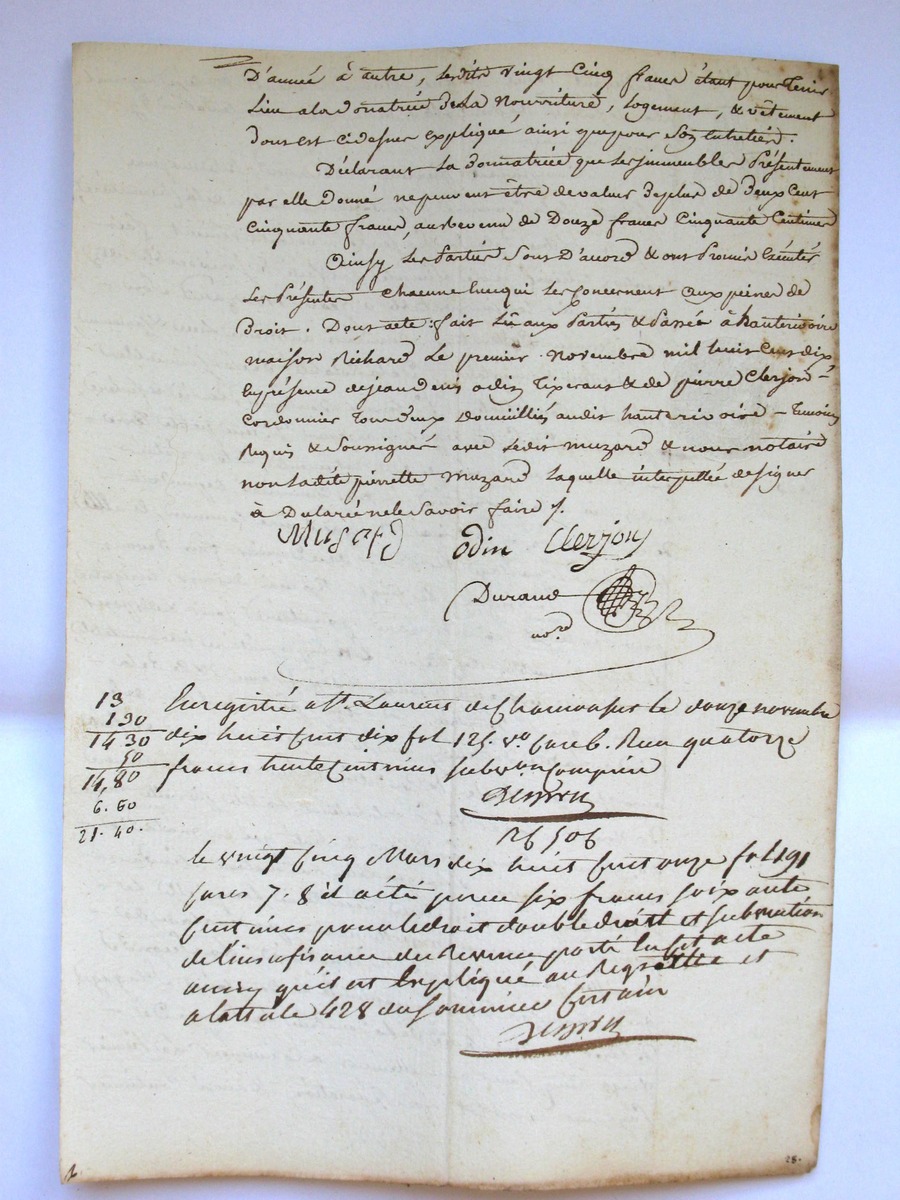 D'année à autre, lesdits vingt Cinq francs étant pour Tenir
Lieu a la donatrice de la Nourriture, Logement, & vêtement
dont est Cidesus expliqué ainsi que pour son entretien.
Déclarant La Donnatrice que les jmmeubles Présentement
par elle Donné ne peuvent être de valeur de plus de Deux Cent
Cinquante francs, au revenu de Douze francs Cinquante Centimes
Ainsy Les Parties Sont D'acord & ont Promis Exécuter
Les Présentes Chacune en ce qui les Concernent aux peines de
Droit. Dont acte : fait Lû aux Parties & Passée à hauterivoire
maison Richard Le premier novembre mil huit Cent dix
En présence de jean denis odin Tixerant & de pierre Clerjon -
Cordonnier Tous Deux Domiciliés audit hauterivoire - Temoins
Requis & Soussignés avec ledit muzard & nous notaire
non Ladite pierrette muzard Laquelle interpellée de signer
à Déclaré ne le Savoir faire /.
Musard odin Clerjon
Durand
no.re
13
1 30
14 30
50
14,80
6. 60
21. 40.
Enregistré a St. Laurent de Chamousset le douze novembre
dix huit cent dix fol 125. vo. case 6. Reçu quatorze
francs trente Centimes subvon Comprise
26506
le vingt Cinq Mars dix huit Cent onze fol 191
cases 7. 8 il a été perçu six francs soixante
Centimes pour le droit double droit et subvention
de l'insufisance du Revenu porté en cet acte
ainsy qu'il est Expliqué au Registre et
a l'article 428 du sommier Certain
28.